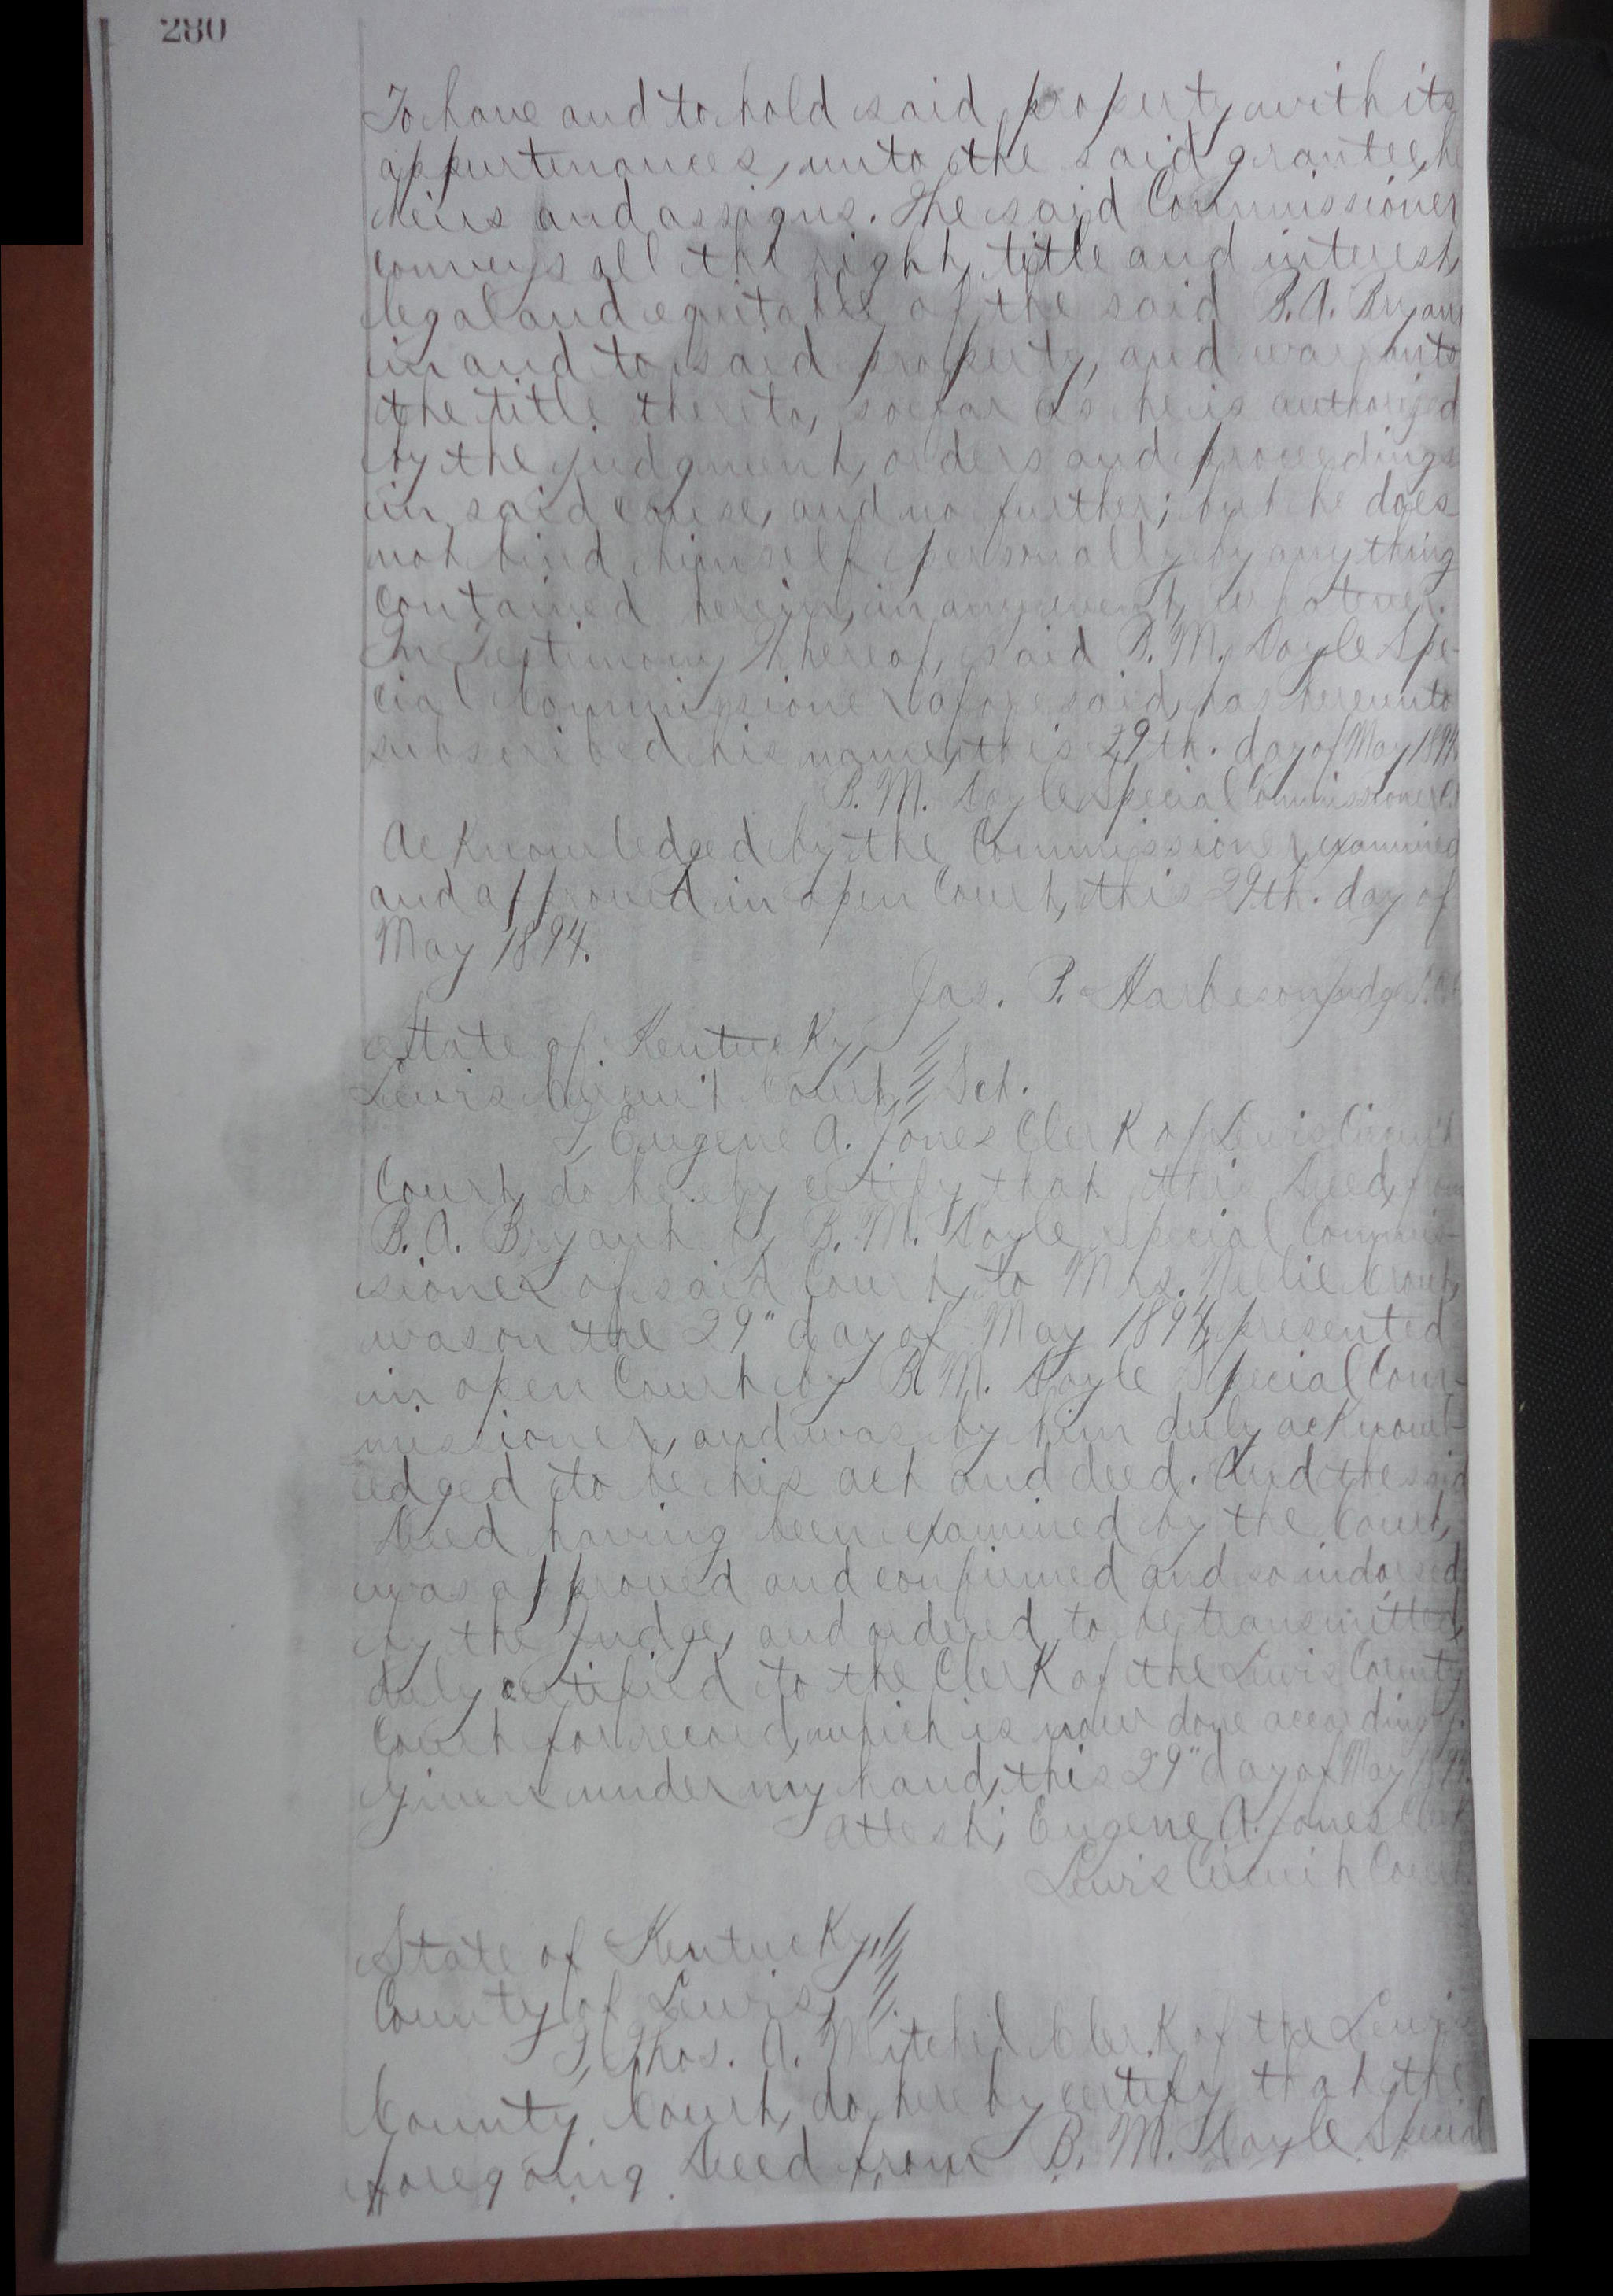 280
To have and to hold said property, with its
appurtenances, unto the said grantee, he
heirs and assigns. The said Commissioner
conveys all the right, title and interest,
legal and equitable of the said B. A. Bryant
in and to said property, and warrants
the title thereto, so far as he is authorized
by the judgment, orders and proceedings
in said cause, and no further; but he does
not bind himself personally by any thing
contained herein, in any event, whatever.
In Testimony Whereof, said B. M. Doyle Spe-
cial Commissioner aforesaid, has hereunto
subscribed his name, this 29th. day of May 1894.
B. M. Doyle Special Commissioner
Acknowledged by the Commissioner, examined
and approved in open Court, this 29th. day of
May 1894.
Jas. P. Harbeson Judge
State of Kentucky
Lewis Circuit Court, Sct.
I, Eugene A. Jones Clerk of Lewis Circuit
Court, do hereby certify that this Deed, from
B. A. Bryant by B. M. Doyle Special Commis-
sioner of said Court, to Mrs. Nellie
was on the 29" day of May 1894, presented
in open Court by B. M. Doyle Special Com-
missioner, and was by him duly acknowl-
edged to be his act and deed. And the said
Deed having been examined by the Court,
was approved and confirmed and so indorsed
by the Judge, and ordered to be transmitted,
duly certified to the Clerk of the Lewis County
Court for record, which is now done accordingly.
Given under my hand, this 29" day of May 1894.
Attest; Eugene A. Jones Clerk
Lewis Circuit Court
State of Kentucky,
County of Lewis,
I, Thos. A. Mitchel Clerk of the Lewis
County Court, do hereby certify that the
foregoing Deed from B. M. Doyle Special